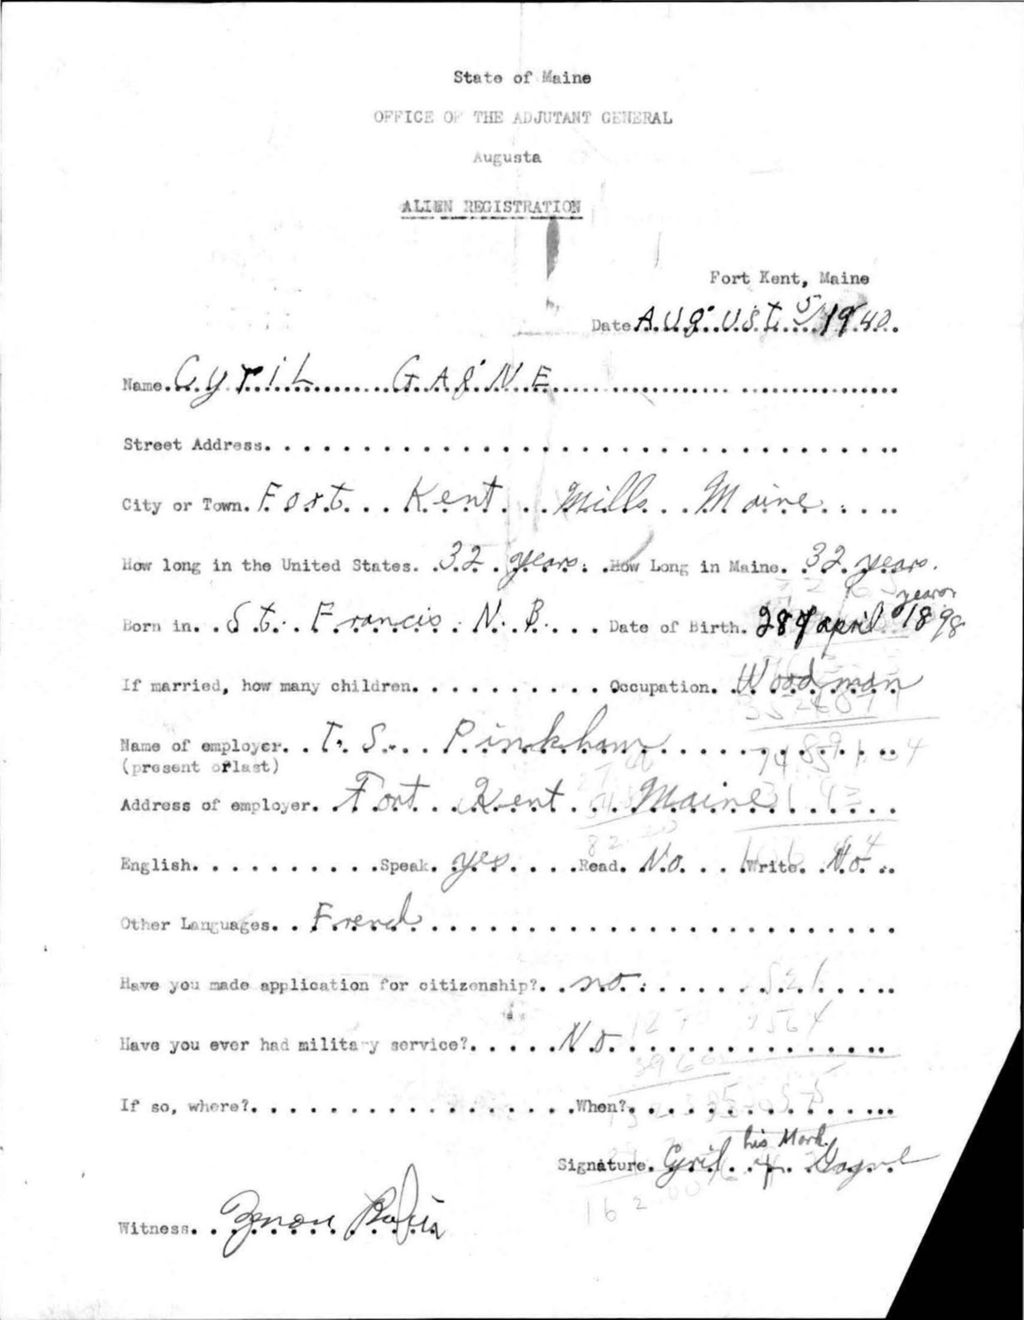 State of Maine
OFFICE OF THE ADJUTANT GENERAL
Augusta
ALIEN REGISTRATION
Fort Kent, Maine
Date August 5 1940
Name Cyril Gagne
Street Address
City or Town. Fort Kent Mills Maine
How long in the United States. 32 years. How Long in Maine. 32 years.
Born in. St. Francis N.B. Date of Birth. 28 of april years 1898
If married, how many children. Occupation. Woodman
Name of employer. T. S. Pinkham
(present or last)
Address of employer. Fort Kent Maine
English. Speak. yes Read. No. Write. No.
Other Languages. French
Have you made application for citizenship? no.
Have you ever had military service? No.
If so, where? When?
his Mark.
Signature. Cyril X Gagne
Witness.